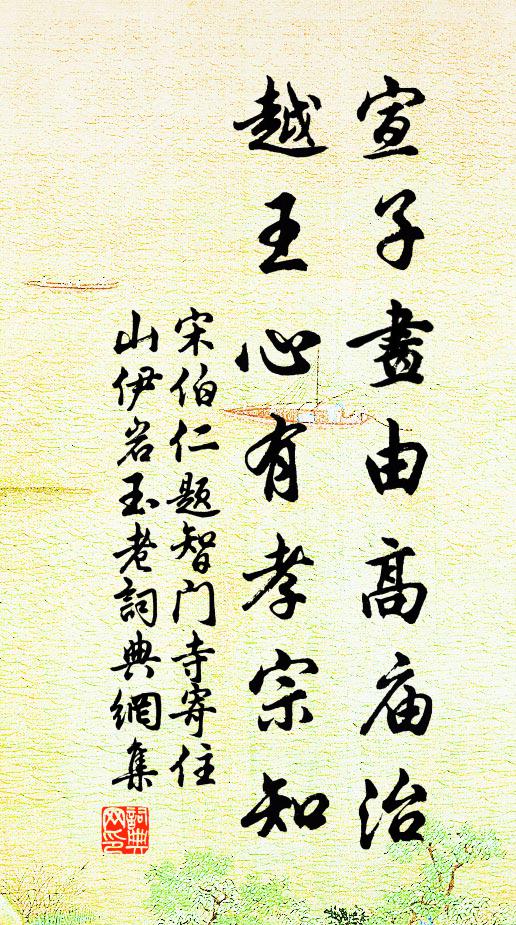 宣子畫由高庙治
越王心有孝宗知
宋伯仁题智门寺寄住
山伊岩玉老詞典網集
詞典网印